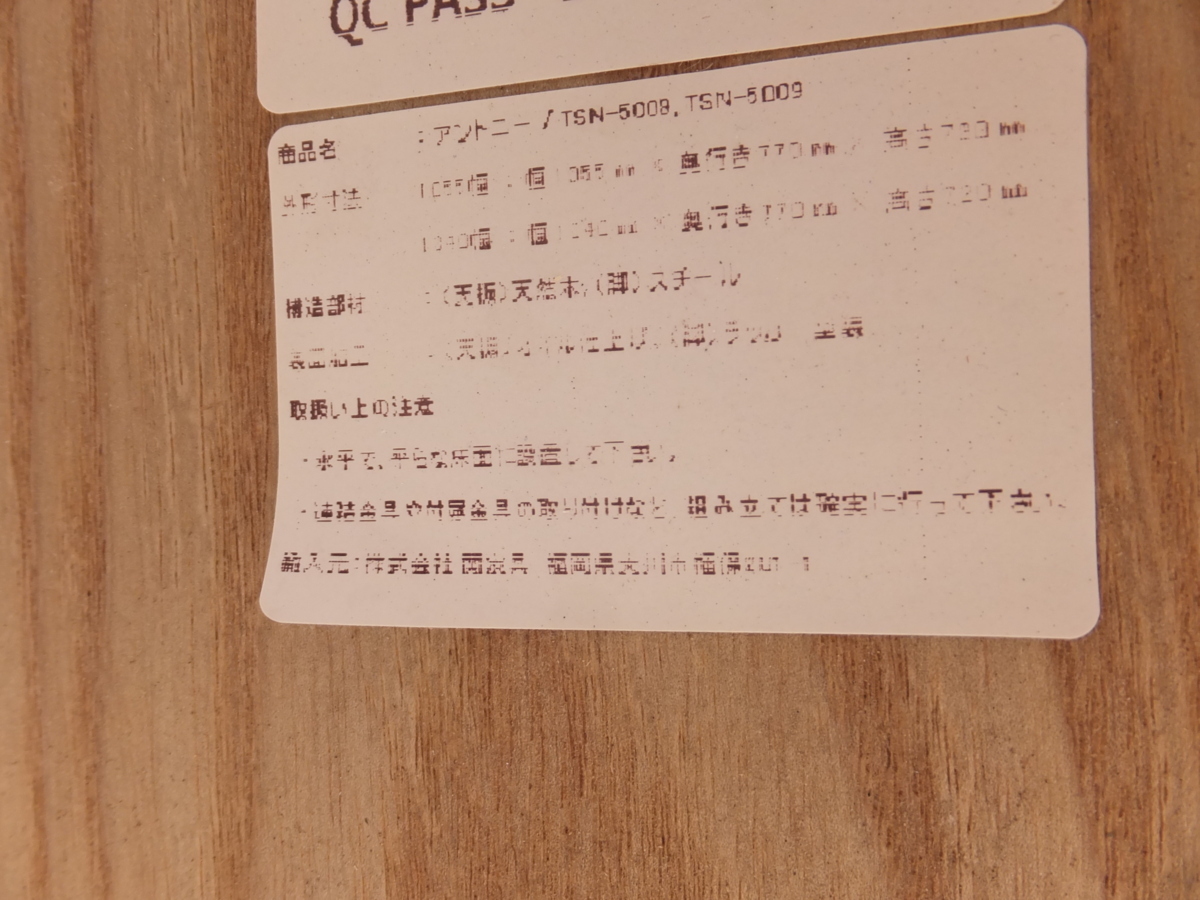 QC PASS
商品名 :アントニー / TSN-5008, TSN-5009
外形寸法 幅 : 幅 mm × 奥行き770mm × 高さ mm
幅 : 幅 mm × 奥行き770mm × 高さ mm
構造部材 :(天板)天然木,(脚)スチール
表面加工 :(天板)オイル仕上げ,(脚) 塗装
取扱い上の注意
・水平で、平らな床面に設置して下さい。
・連結金具や付属金具の取り付けなど、組み立ては確実に行って下さい。
輸入元:株式会社 家具 福岡県大川市